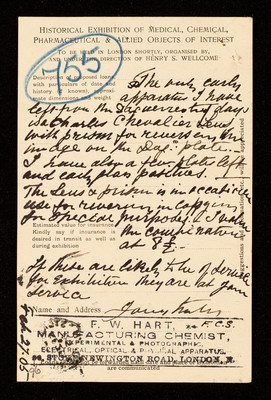 HISTORICAL EXHIBITION OF MEDICAL, CHEMICAL,
PHARMACEUTICAL & ALLIED OBJECTS OF INTEREST
TO BE HELD IN LONDON SHORTLY, ORGANISED BY,
AND UNDER THE DIRECTION OF HENRY S. WELLCOME
755
Description of proposed loans
with particulars of date and
history (if known), approxi-
mate dimensions and weight
The only early
apparatus I have
left from the Daguerreotype days
is Chevalier Lens
with prism for reversing the
image on the Dag: plate.
I have also a few plates left
and early glass positives.
The Lens & prism is in occasional
use for reversing in copying
for special purposes. I value
Estimated value for insurance
Kindly say if insurance
is desired in transit as well as
during exhibition
the combination
at £
If these are likely to be of service
for exhibition they are at your
service
Name and Address
F. W. HART, F.C.S.
MANUFACTURING CHEMIST,
EXPERIMENTAL & PHOTOGRAPHIC,
ELECTRICAL, OPTICAL & PHYSICAL APPARATUS,
STOKE NEWINGTON ROAD, LONDON, N.
are communicated